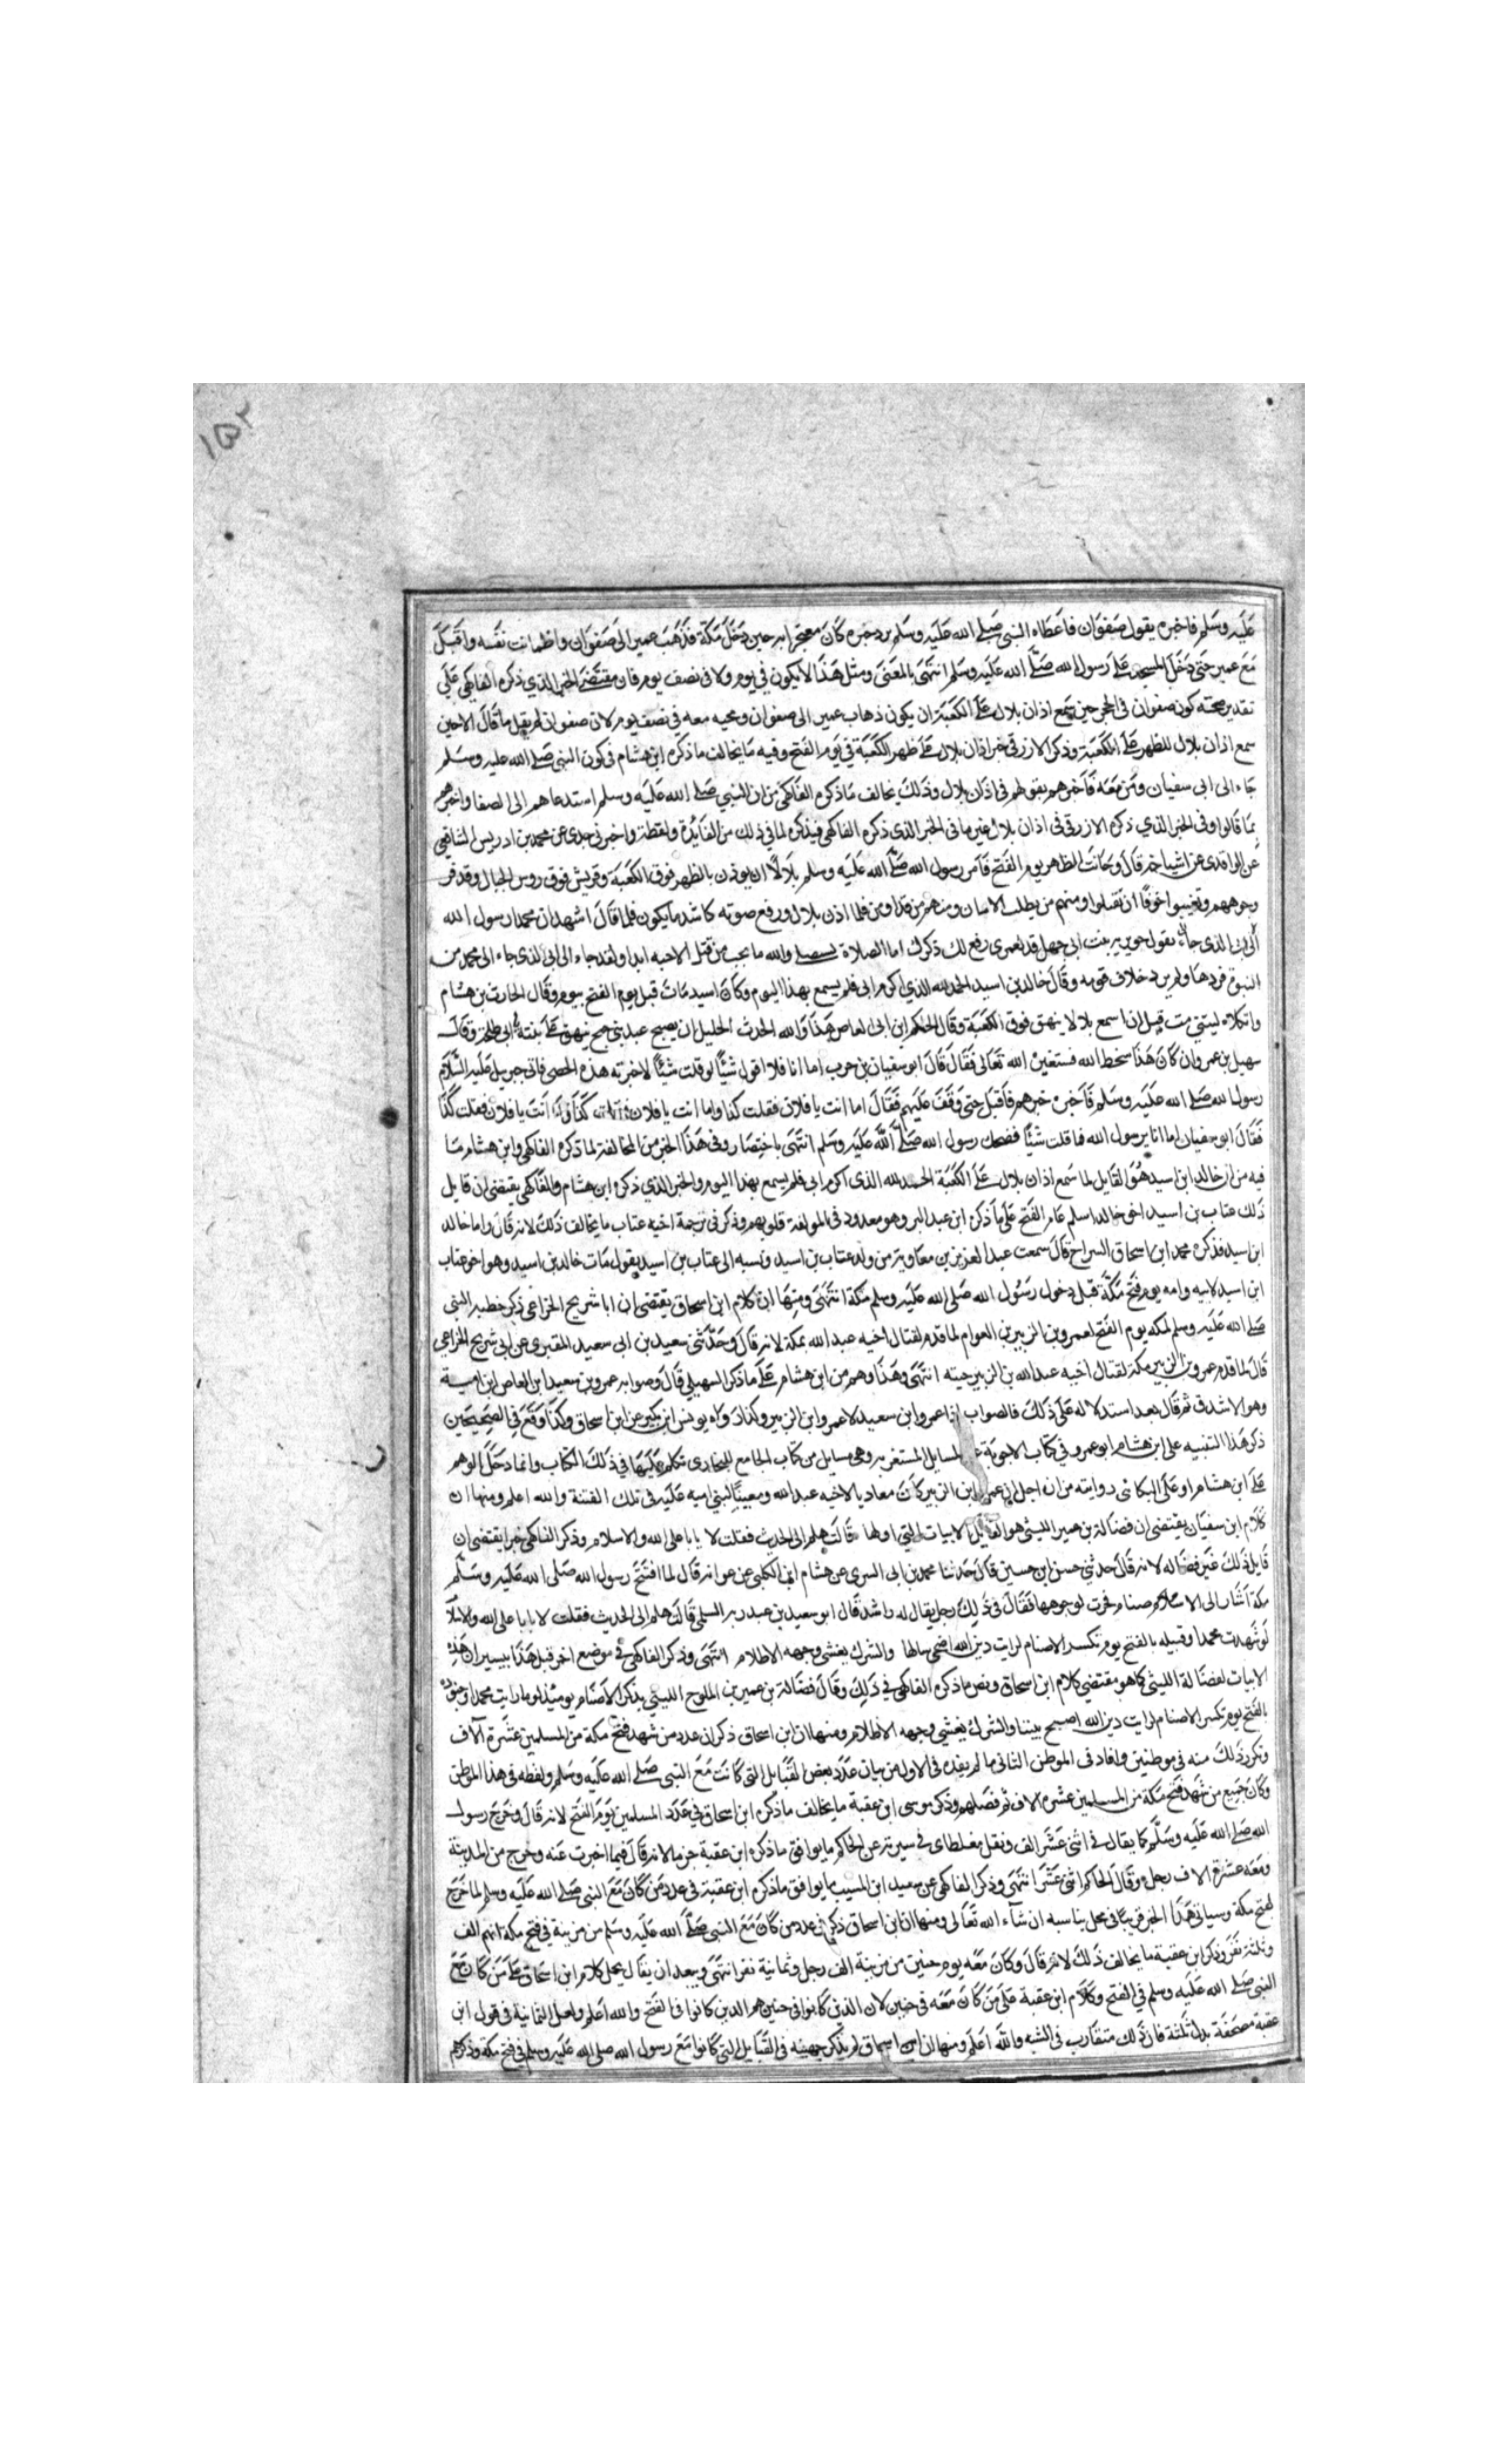 ١٥٢
عليه وسلم فاخبره يقول صفوان فاعطاه النبي صلى الله عليه وسلم برد حبره كان معتجرا به حين دخل مكة فذهب عمير الى صفوان واطمانت نفسه واقبل
مع عمير حتى دخل المسجد على رسول الله صلى الله عليه وسلم انتهى بالمعنى ومثل هذا لا يكون في يوم ولا في نصف يوم فان مقتضى الخبر الذي ذكره الفاكهي على
تقدير صحته كون صفوان في الحجر حين سمع اذان بلال على الكعبة ان يكون ذهاب عمير الى صفوان ومجيه معه في نصف يوم لان صفوان لم يقل ما قال الا حين
سمع اذان بلال للظهر على الكعبة وذكر الازرقي خبر اذان بلال على ظهر الكعبة في يوم الفتح وفيه ما يخالف ما ذكره ابن هشام في كون النبي صلى الله عليه وسلم
جاء الى ابي سفيان ومن معه فاخبرهم بقولهم في اذان بلال وذلك يخالف ما ذكره الفاكهي من ان النبي صلى الله عليه وسلم استدعاهم الى الصفا واخبرهم
بما قالوا وفي الخبر الذي ذكره الازرقي في اذان بلال غير ما في الخبر الذي ذكره الفاكهي فيذكره لما في ذلك من الفايدة ولفظة واخبرني جدي عن محمد بن ادريس الشافعي
عن الواقدي عن اشياخه قال وحانت الظهر يوم الفتح فامر رسول الله صلى الله عليه وسلم بلالا ان يوذن بالظهر فوق الكعبة وقريش فوق روس الجبال وقد فر
وجوههم وتغيبوا خوفا ان يقتلوا ومنهم من يطلب الامان ومنهم من قد اومن فلما اذن بلال ورفع صوته كاشد ما يكون فلما قال اشهد ان محمدا رسول الله
تقول جويرية بنت ابي جهل قد لعمري رفع لك ذكرك اما الصلاة والله ما نحب من قتل الاحبه ابدا ولقد جاء الى ابي الذي جاء الى محمد من
النبوة فردها ولم يرد خلاف قومه وقال خالد بن اسيد الحمد لله الذي اكرم ابي فلم يسمع بهذا اليوم وكان اسيد مات قبل يوم الفتح بيوم وقال الحارث بن هشام
واثكلاه ليتني مت قبل ان اسمع بلالا ينهق فوق الكعبة وقال الحكم ابن ابي العاص هذا والله الحدث الجليل ان يصبح عبد بني جمح ينهق على بنية ابي طلحة وقال
سهيل بن عمرو ان كان هذا سخط الله فستغير الله تعالى فقال قال ابو سفيان بن حرب اما انا فلا اقول شيئا لو قلت شيئا لاخبرته هذه الحصى فاتى جبريل عليه السلام
رسول الله صلى الله عليه وسلم فاخبره خبرهم فاقبل حتى وقف عليهم فقال اما انت يا فلان فقلت كذا واما انت يا فلان فقلت كذا انت يا فلان فقلت كذا
فقال ابو سفيان اما انا يرسول الله فما قلت شيئا فضحك رسول الله صلى الله عليه وسلم انتهى باختصار وفي هذا الخبر من المخالفة لما ذكره الفاكهي وابن هشام ما
فيه من ان خالد ابن اسيد هو القايل لما سمع اذان بلال على الكعبة الحمد لله الذي اكرم ابي فلم يسمع بهذا اليوم والخبر الذي ذكره ابن هشام والفاكهي يقتضي ان قايل
ذلك عتاب بن اسيد اخو خالد اسلم عام الفتح على ما ذكره ابن عبد البر وهو معدود في المولفة قلوبهم وذكر في ترجمة اخيه عتاب ما يخالف ذلك لانه قال واما خالد
ابن اسيد فذكره محمد ابن اسحاق السراج قال سمعت عبد العزيز بن معاوية من ولد عتاب بن اسيد ونسبه الى عتاب بن اسيد يقول مات خالد بن اسيد وهو اخو عتاب
ابن اسيد لابيه وامه يوم فتح مكة قبل دخول رسول الله صلى الله عليه وسلم مكة انتهى ومنها ان كلام ابن اسحاق يقتضي ان ابا شريح الخزاعي ذكر خطبة النبي
صلى الله عليه وسلم لمكه يوم الفتح لعمرو بن الزبير بن العوام لما قدم لقتال اخيه عبد الله بمكة لانه قال وحدثني سعيد بن ابي سعيد المقبري عن ابي شريح الخزاعي
قال لما قدم عمرو بن الزبير مكة لقتال اخيه عبد الله بن الزبير جيته انتهى وهذا وهم من ابن هشام على ما ذكر السهيلي قال وصوابه عمرو بن سعيد ابن العاص ابن امية
وهو الاشدق ثم قال بعد استدلاله على ذلك فالصواب اذا عمرو ابن سعيد لا عمرو ابن الزبير وكذا رواه يونس ابن بكير عن ابن اسحاق وكذا وقع في الصحيحين
ذكر هذا التنبيه على ابن هشام ابو عمرو في كتاب الاجوبة المسايل المستغربه وهي مسايل من كتاب الجامع للبخاري تكلم عليها في ذلك الكتاب وانما دخل الوهم
على ابن هشام او على البكائي روايته من ان اجل ان عمرو ابن الزبير كان معاديا لاخيه عبد الله ومعينا لبني اميه عليه في تلك الفتنة والله اعلم ومنها ان
كلام ابن سفيان يقتضي ان فضالة بن عمير الليثي هو القايل الابيات التي اولها قالت هلم الى الحديث فقلت لا يابا على الله والاسلام وذكر الفاكهي خبرا يقتضي ان
قايل ذلك غير فضاله لانه قال حدثني حسن ابن حسين قال حدثنا محمد بن ابي السري عن هشام ابن الكلبي عن عوانه قال لما افتتح رسول الله صلى الله عليه وسلم
مكة اشار الى الاصنام فخرت لوجوهها فقال في ذلك رجل يقال له راشد قال ابو سعيد بن عبد ربه السلمي قالت هلم الى الحديث فقلت لا يابا على الله والاسلام
لو شهدت محمدا وقبيله بالفتح يوم تكسر الاصنام لرايت دين الله اضحى ساطا والشرك يغشى وجهه الاظلام انتهى وذكر الفاكهي في موضع اخر قبل هذا بيسير ان هذه
الابيات لفضالة الليثي كما هو مقتضي كلام ابن اسحاق ونص ما ذكره الفاكهي في ذلك وقال فضالة بن عمير بن الملوح الليثي يذكر الاصنام يوميئذ لو ما رايت محمدا وجنوده
بالفتح يوم تكسر الاصنام لرايت دين الله اصبح بيننا والشرك يغشى وجهه الاظلام ومنها ان ابن اسحاق ذكر ان عدد من شهد فتح مكة من المسلمين عشرة آلاف
وتكرر ذلك منه في موطنين وافاد في الموطن الثاني ما لم يفده في الاول من بيان عدد بعض القبايل التي كانت مع النبي صلى الله عليه وسلم ولفظه في هذا الموطن
وكان جميع من شهد فتح مكة من المسلمين عشره الاف ثم فصلهم وذكر موسى ابن عقبة ما يخالف ما ذكره ابن اسحاق في عدد المسلمين يوم الفتح لانه قال وخرج رسول
الله صلى الله عليه وسلم كما يقال في اثني عشر الف ونقل مغلطاي في سيرته عن الحاكم ما يوافق ما ذكره ابن عقبة جزما لانه قال فيما اخبرت عنه وخرج من المدينة
ومعه عشرة الاف رجل وقال الحاكم اثني عشر انتهى وذكر الفاكهي عن سعيد ابن المسيب ما يوافق ما ذكره ابن عقبة في عدد من كان مع النبي صلى الله عليه وسلم لما خرج
لفتح مكة وسياتي هذا الخبر قريبا في محل يناسبه ان شاء الله تعالى ومنها ان ابن اسحاق ذكر في عدد من كان مع النبي صلى الله عليه وسلم من مزينة في فتح مكة انهم الف
وثلثة نفر وذكر ابن عقبة ما يخالف ذلك لانه قال وكان معه يوم حنين من مزينة الف رجل وثمانية نفر انتهى ويبعد ان يقال يحل كلام ابن اسحاق على من كان مع
النبي صلى الله عليه وسلم في الفتح وكلام ابن عقبة على من كان معه في حنين لان الذين كانوا في حنين هم الذين كانوا في الفتح والله اعلم ولعل الثمانية في قول ابن
عقبة مصحفة بدل ثلثة فان ذلك متقارب في الشبه والله اعلم ومنها ان ابن اسحاق لم يذكر جهينه في القبايل التي كانوا مع رسول الله صلى الله عليه وسلم في فتح مكة وذكرهم